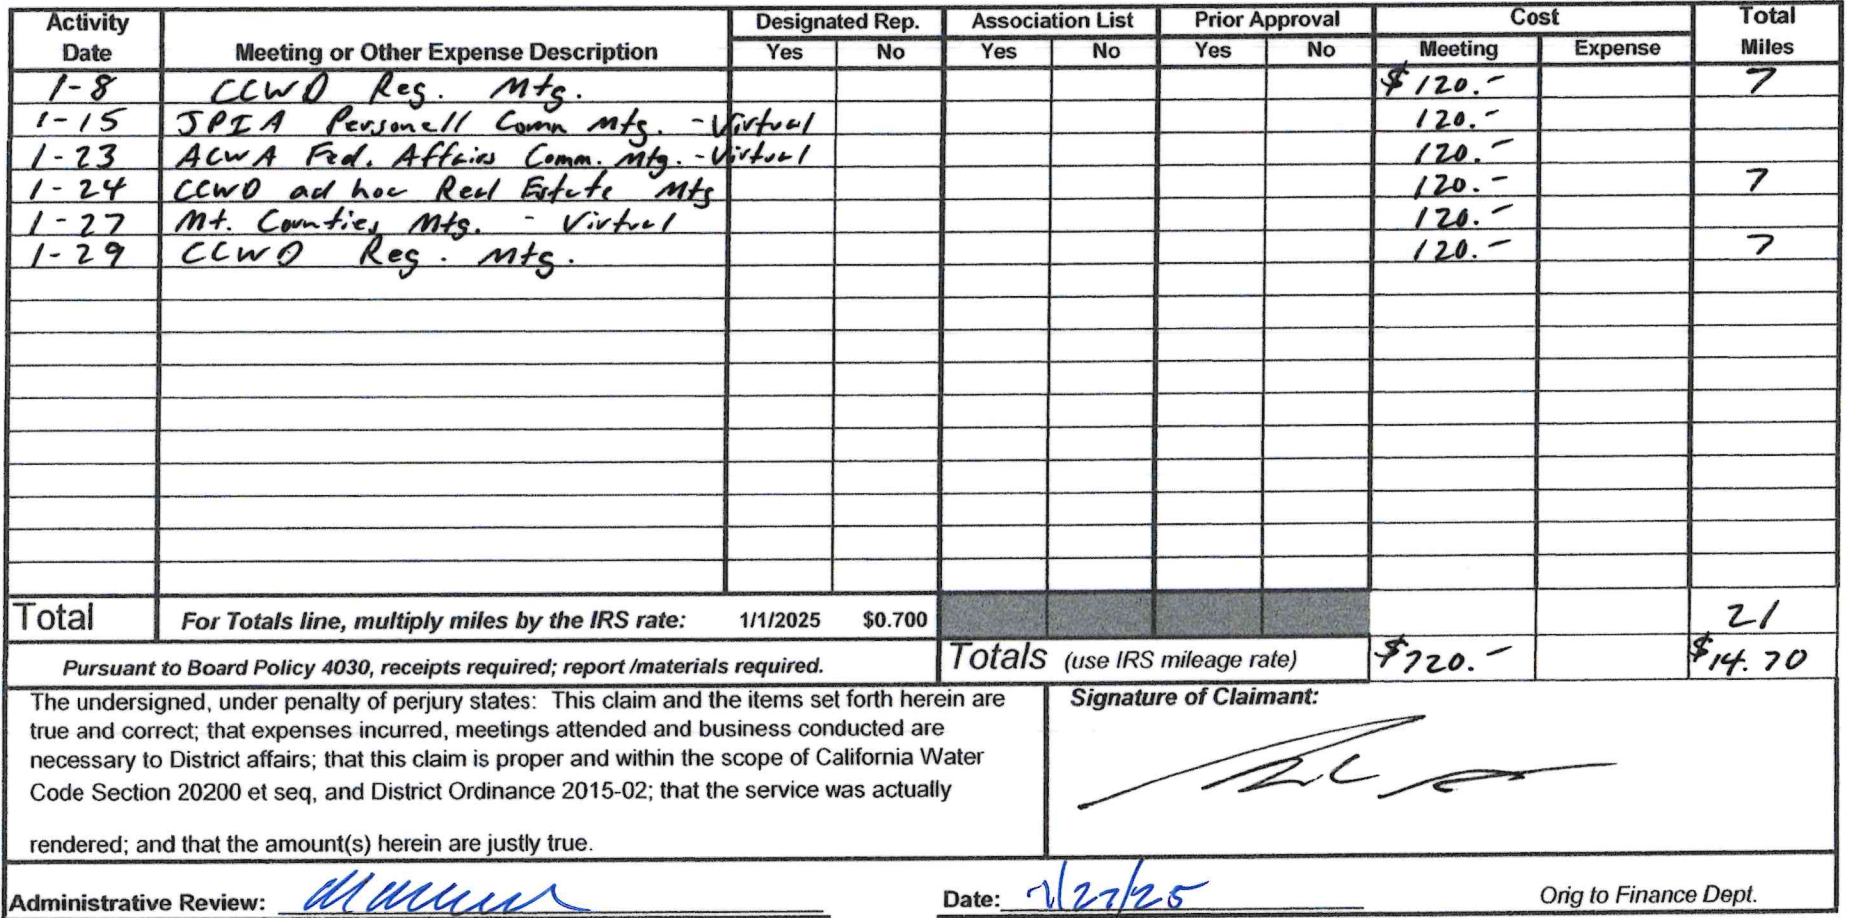 Activity Date Meeting or Other Expense Description Designated Rep. Yes No Association List Yes No Prior Approval Yes No Cost Meeting Expense Total Miles
1-8 CCWD Reg. Mtg. $120.- 7
1-15 JPIA Personell Comm Mtg. - Virtual 120.-
1-23 ACWA Fed. Affairs Comm. Mtg. - Virtual 120.-
1-24 CCWD ad hoc Real Estate Mtg 120.- 7
1-27 Mt. Counties Mtg. - Virtual 120.-
1-29 CCWD Reg. Mtg. 120.- 7
Total For Totals line, multiply miles by the IRS rate: 1/1/2025 $0.700 21
Pursuant to Board Policy 4030, receipts required; report /materials required. Totals (use IRS mileage rate) $720.- $14.70
The undersigned, under penalty of perjury states: This claim and the items set forth herein are
true and correct; that expenses incurred, meetings attended and business conducted are
necessary to District affairs; that this claim is proper and within the scope of California Water
Code Section 20200 et seq, and District Ordinance 2015-02; that the service was actually
rendered; and that the amount(s) herein are justly true.
Signature of Claimant:
Administrative Review: Date: Orig to Finance Dept.